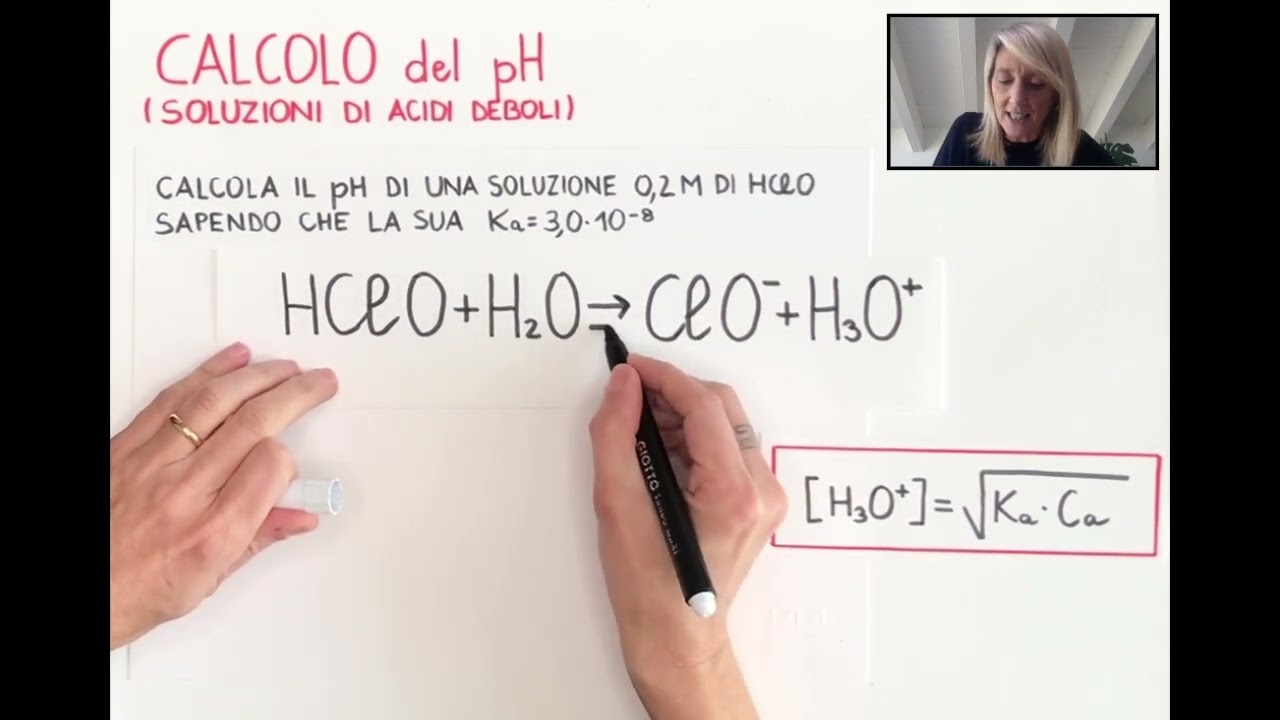 CALCOLO del pH
(SOLUZIONI DI ACIDI DEBOLI)
CALCOLA IL pH DI UNA SOLUZIONE 0,2 M DI HClO
SAPENDO CHE LA SUA Ka=3,0·10⁻⁸
HClO+H₂O→ClO⁻+H₃O⁺
[H₃O⁺]=√Ka·Ca
GIOTTO